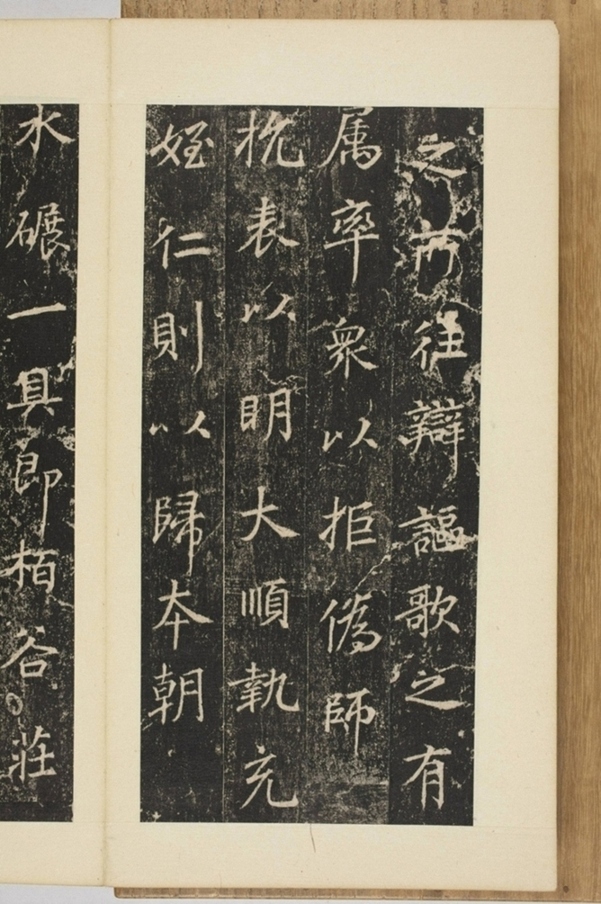 之所往辯謳歌之有
属率衆以拒偽師
抗表以明大順執充
姪仁則以歸本朝
水碾一具即栢谷莊